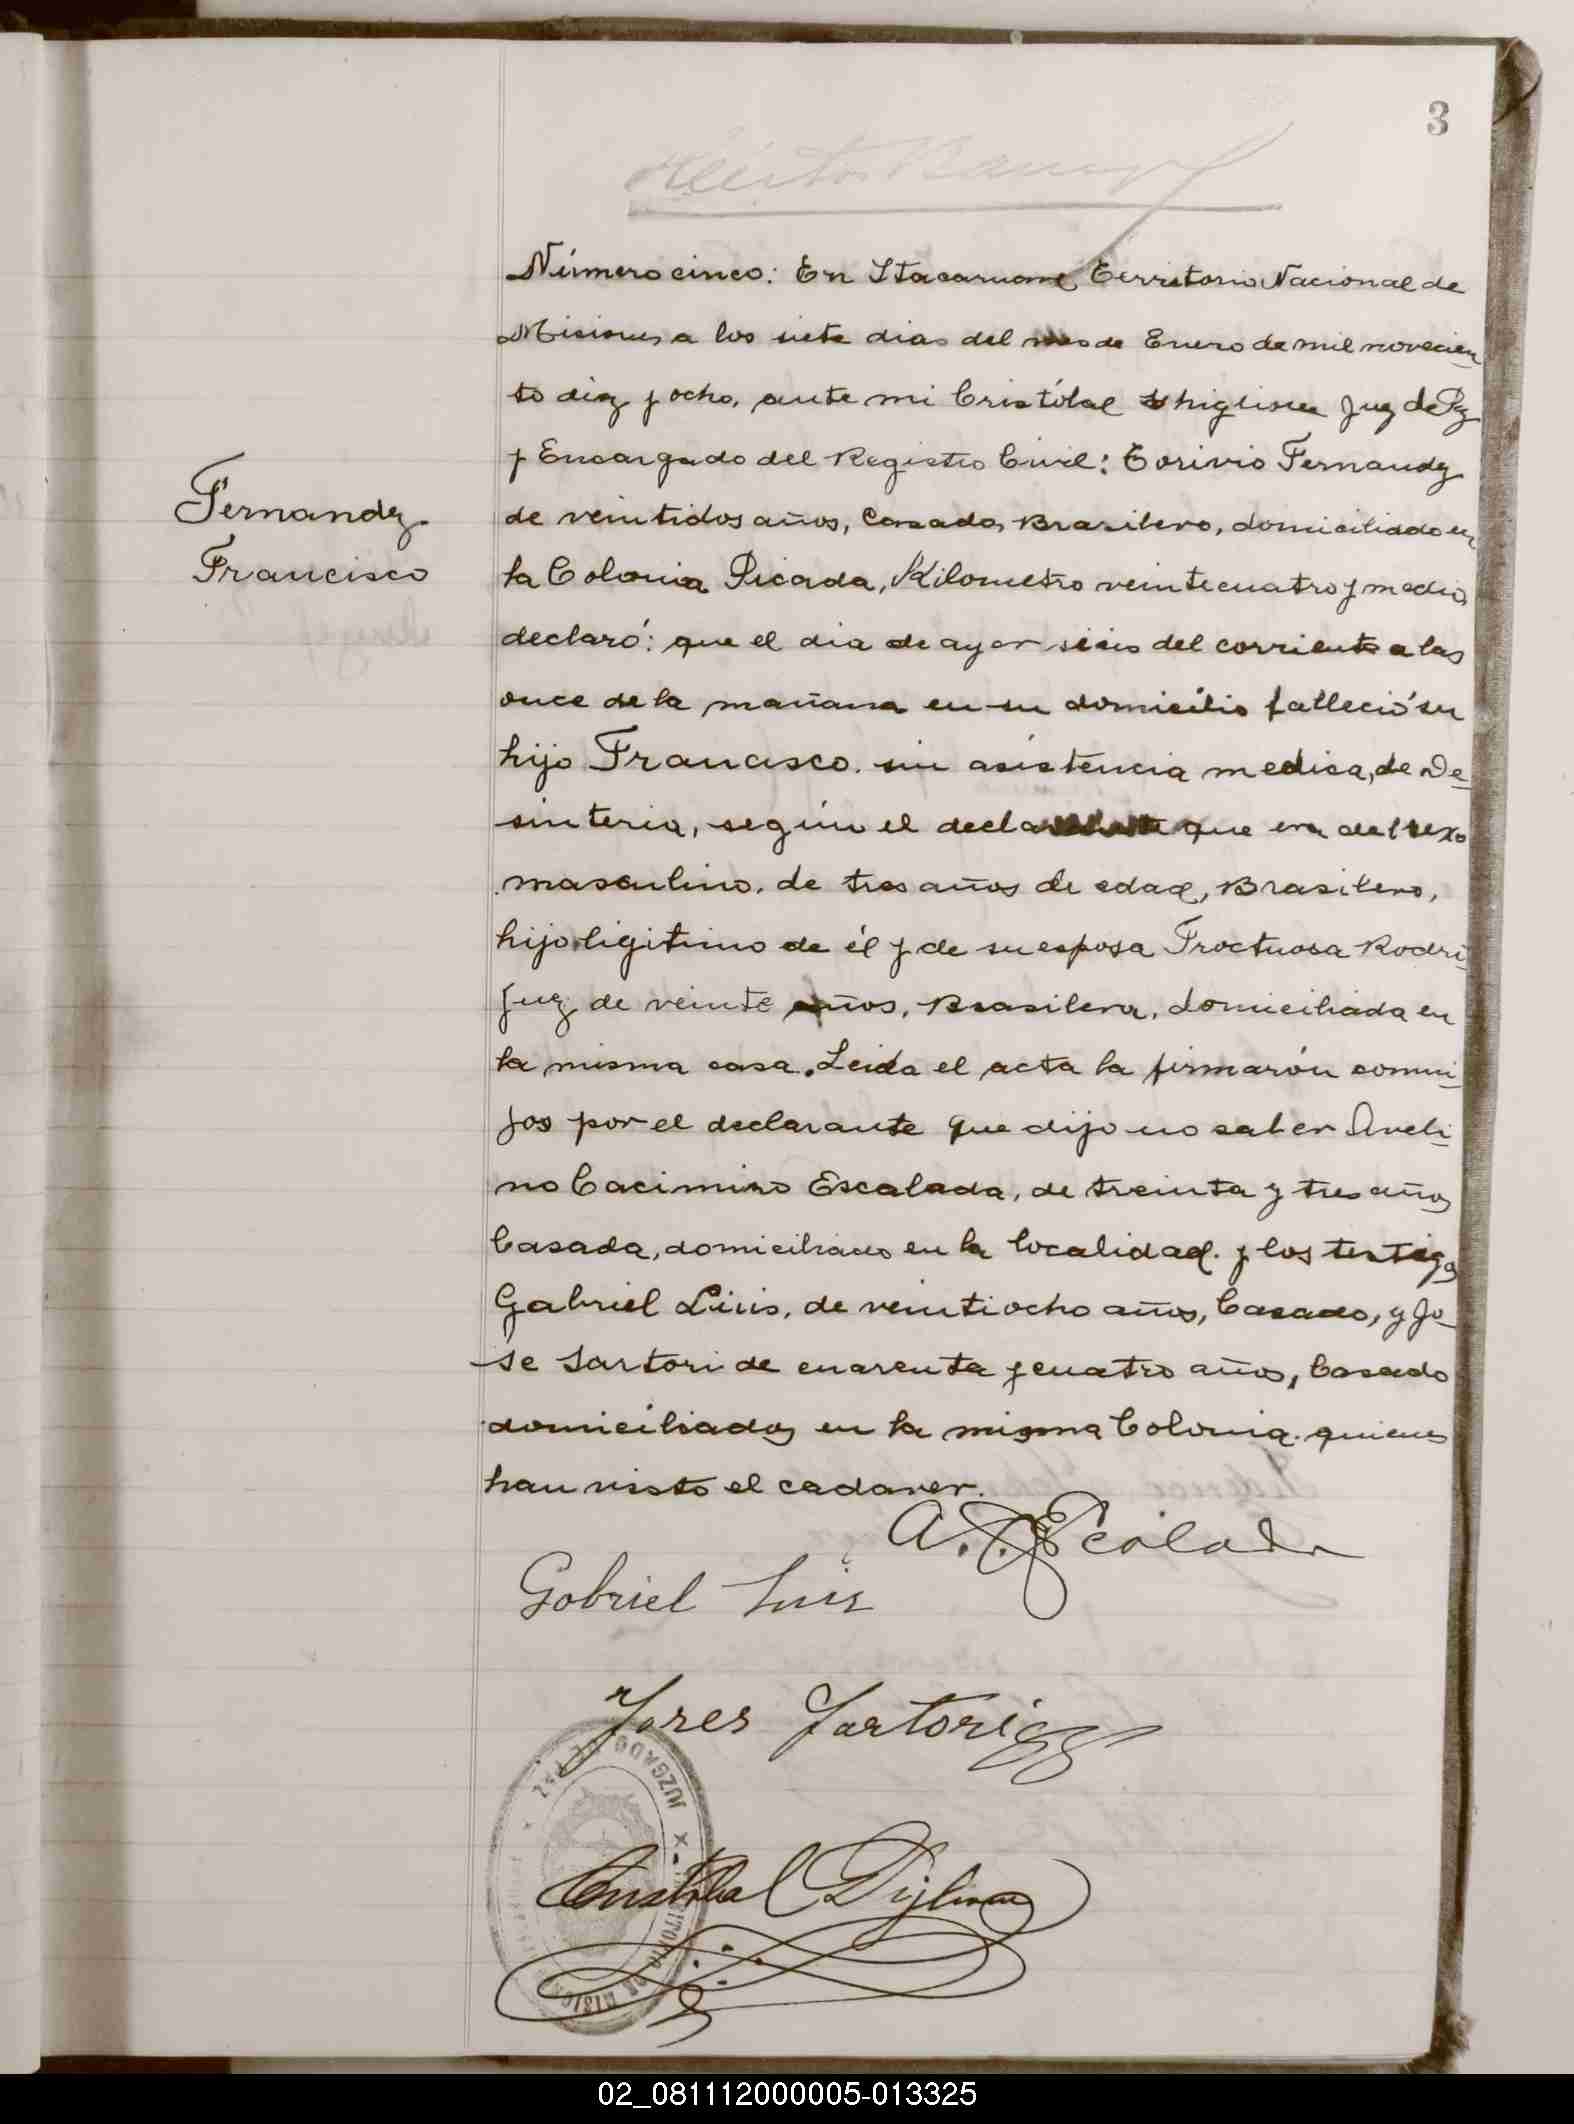 3
Número cinco: En Itacaruare, Territorio Nacional de
Misiones a los siete dias del mes de Enero de mil novecien
to diez y ocho, ante mi Cristóbal Ghiglione Juez de Paz
y Encargado del Registro Civil: Torivio Fernandez
Fernandez
Francisco
de veintidos años, Casado, Brasilero, domiciliado en
la Colonia Picada, Kilometro veintecuatro y medio,
declaró: que el dia de ayer seis del corriente a las
once de la mañana en su domicilio falleció su
hijo Francisco. sin asistencia medica, de De-
sinteria, según el declarante que era del sexo
masculino, de tres años de edad, Brasilero,
hijo ligitimo de él y de su esposa Froctuosa Rodri-
guez de veinte años, Brasilera, domiciliada en
la misma casa. Leida el acta la firmarón conmi-
gos por el declarante que dijo no saber Aveli-
no Cacimiro Escalada, de treinta y tres años
Casada, domiciliado en la localidad. y los testigos
Gabriel Luis, de veintiocho años, Casado, y Jo-
se Sartori de cuarenta y cuatro años, Casado
domiciliados en la misma Colonia. quienes
han visto el cadaver.
A. C. Escalada
Gabriel Luis
Joses Sartori
JUZGADO DE PAZ
TERRITORIO DE MISIONES
Cristobal
02_081112000005-013325